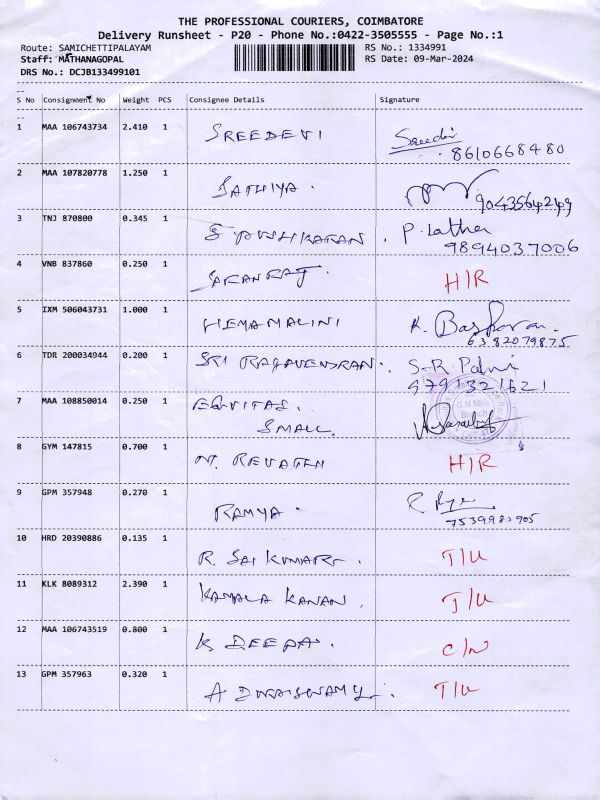 THE PROFESSIONAL COURIERS, COIMBATORE
Delivery Runsheet - P20 - Phone No.:0422-3505555 - Page No.:1
Route: SAMICHETTIPALAYAM RS No.: 1334991
Staff: MATHANAGOPAL RS Date: 09-Mar-2024
DRS No.: DCJB133499101
--
S No Consignment No Weight PCS Consignee Details Signature
--
1 MAA 106743734 2.410 1 SREEDEVI Sreedevi
8610668480
2 MAA 107820778 1.250 1 SATHIYA.
9043564249
3 TNJ 870800 0.345 1 S PUSHKARAN. P. Latha
9894037006
4 VNB 837860 0.250 1 SARANRAJ. H/R
5 IXM 506043731 1.000 1 HEMAMALINI K. Baskaran.
6382079875
6 TDR 200034944 0.200 1 SRI RAGAVENDRAN. S.R.
9791321621
7 MAA 108850014 0.250 1 EQUITAS.
SMALL.
G.N. Mills
Branch
8 GYM 147815 0.700 1 REVATHI H/R
9 GPM 357948 0.270 1 RAMYA. R
7539983905
10 HRD 20390886 0.135 1 R. SAI KUMAR. T/U
11 KLK 8089312 2.390 1 KAMALA KANAN. T/U
12 MAA 106743519 0.800 1 K DEEPA. C/N
13 GPM 357963 0.320 1 A DURAISWAMY. T/U